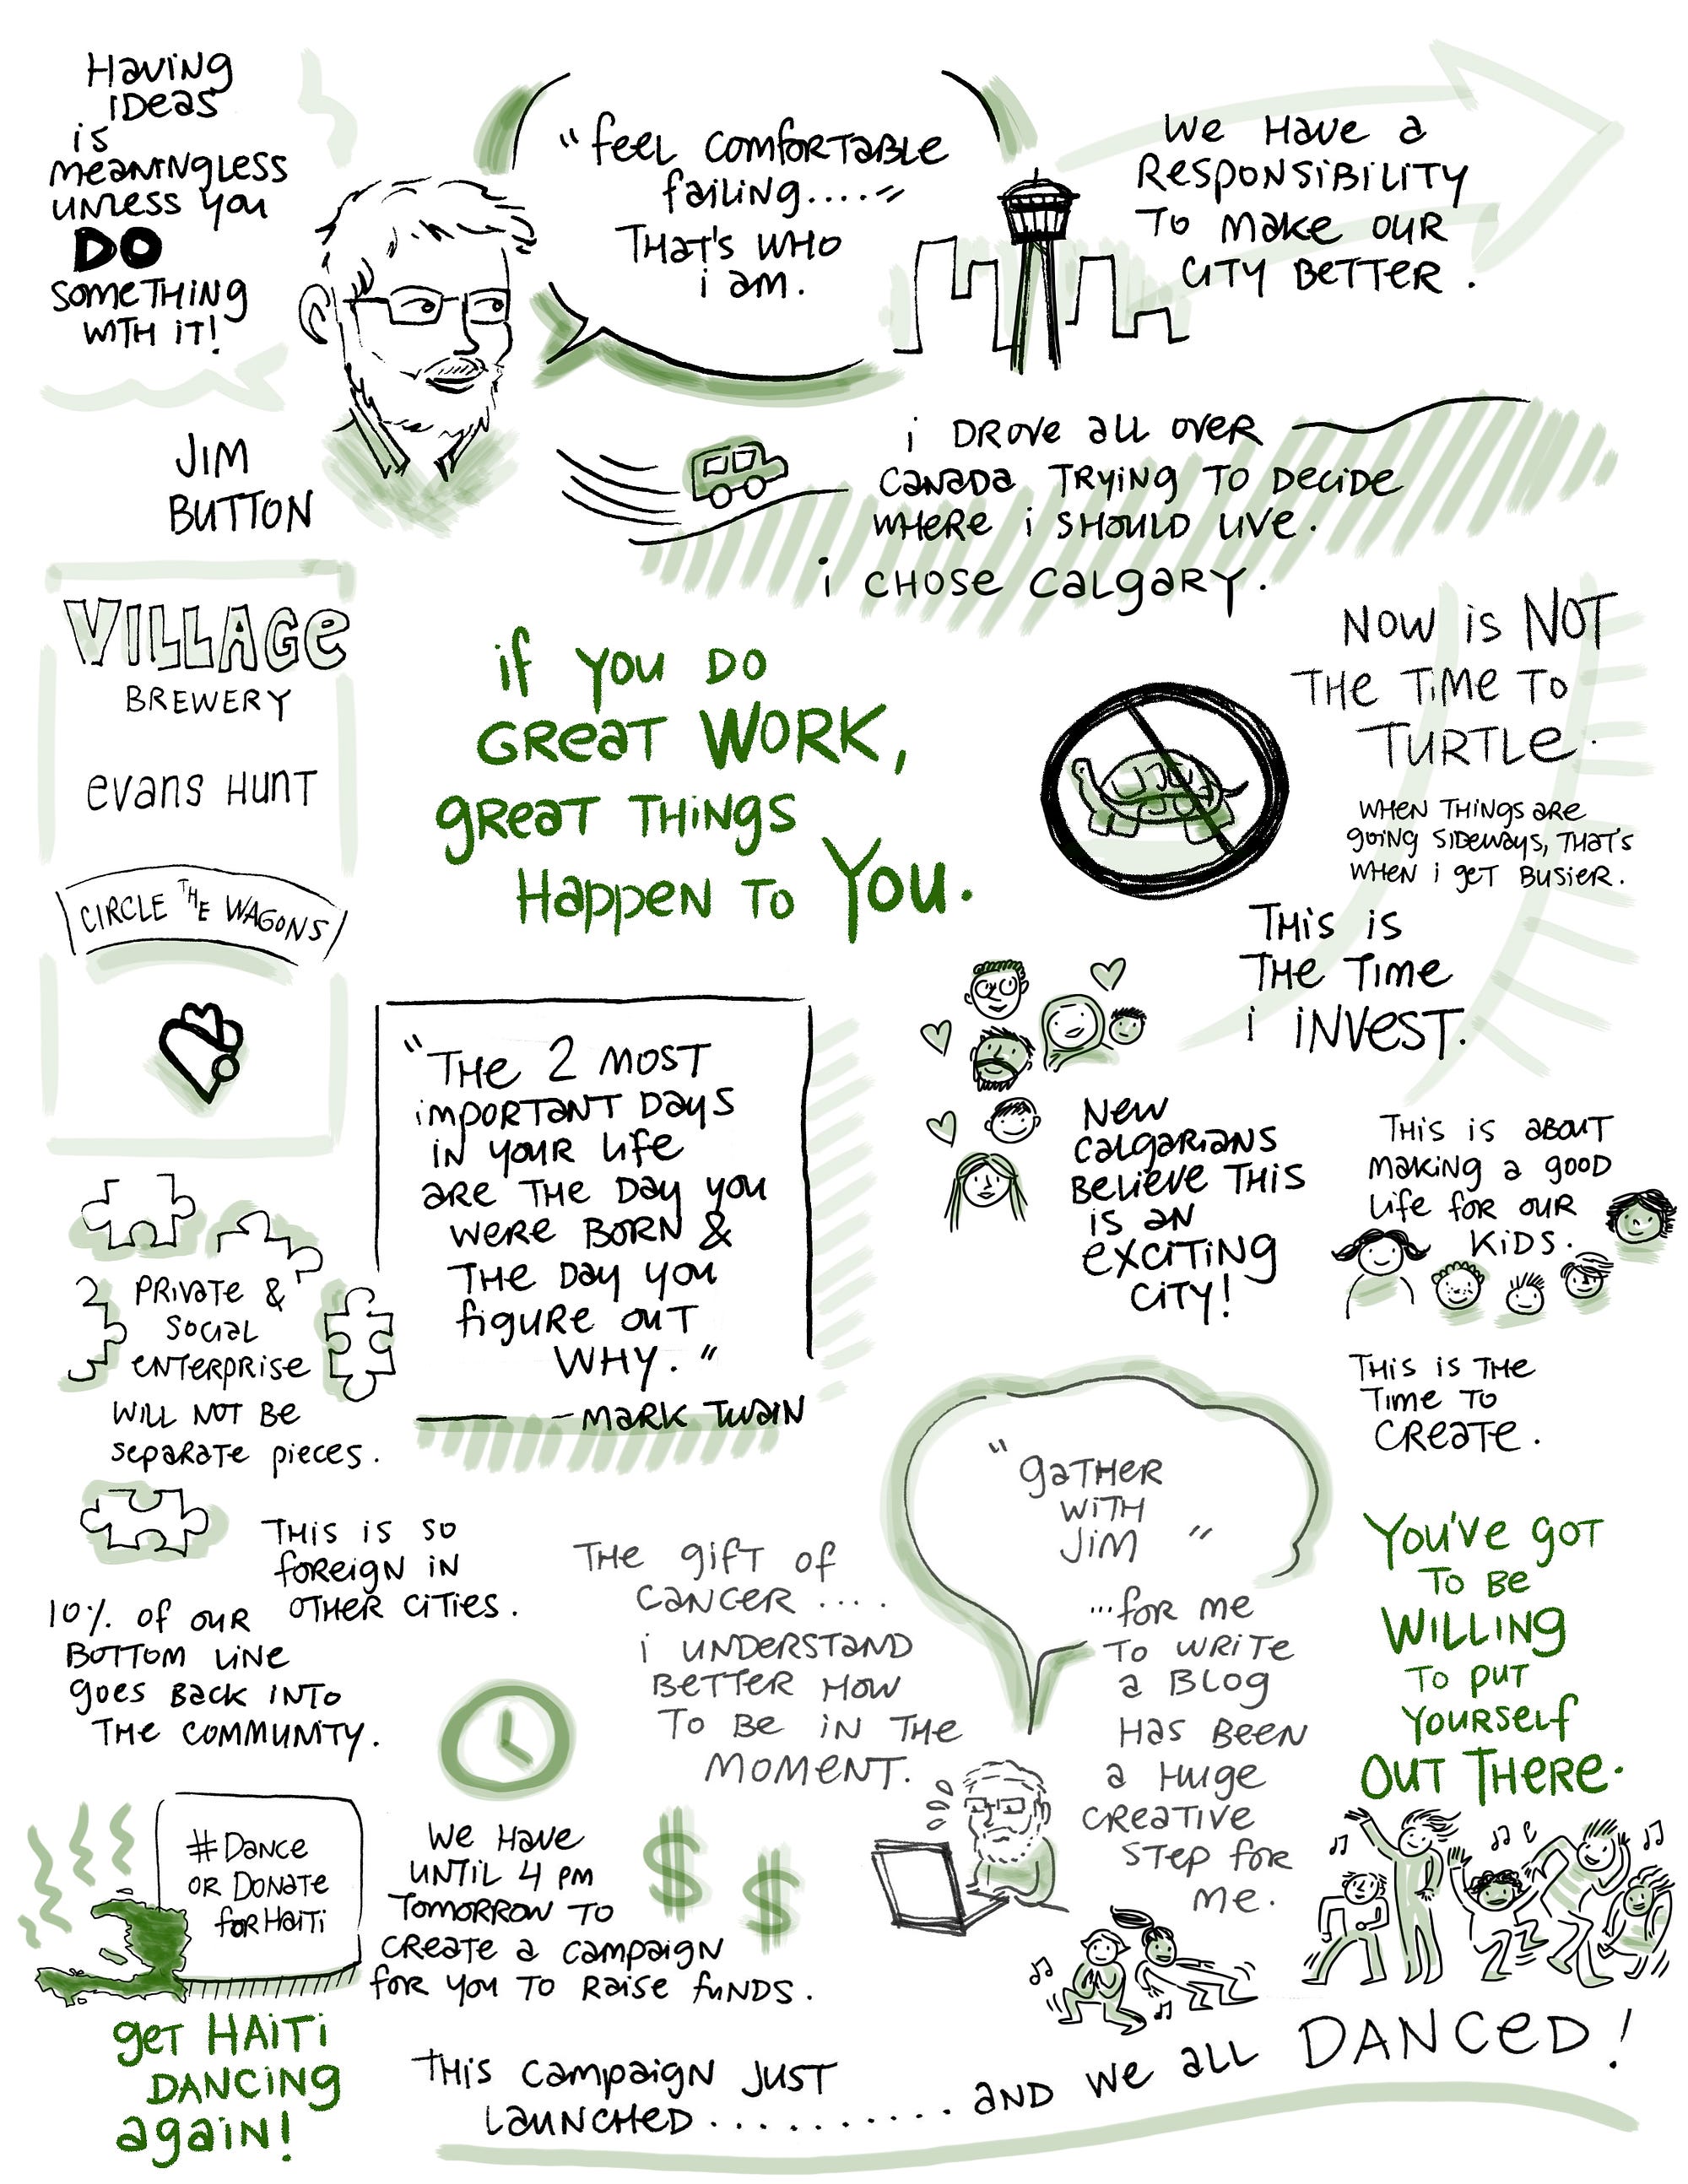 Having
ideas
is
meaningless
unless you
DO
something
with it!
"feel comfortable
failing...."
That's who
i am.
We have a
responsibility
to make our
city better.
Jim
Button
i drove all over
Canada trying to decide
where i should live.
i chose Calgary.
VILLAGE
BREWERY
evans hunt
CIRCLE THE WAGONS
if you do
great work,
great things
happen to you.
Now is NOT
the time to
turtle.
When things are
going sideways, that's
when i get busier.
This is
the time
i invest.
"The 2 most
important days
in your life
are the day you
were born &
the day you
figure out
why."
- Mark Twain
New
Calgarians
believe this
is an
exciting
city!
This is about
making a good
life for our
kids.
This is the
time to
create.
Private &
social
enterprise
will not be
separate pieces.
This is so
foreign in
other cities.
10% of our
bottom line
goes back into
the community.
The gift of
cancer....
i understand
better how
to be in the
moment.
"gather
with
Jim"
...for me
to write
a blog
has been
a huge
creative
step for
me.
You've got
to be
willing
to put
yourself
out there.
#Dance
or Donate
for Haiti
get Haiti
dancing
again!
We have
until 4 pm
tomorrow to
create a campaign
for you to raise funds.
$ $
This campaign just
launched.......... and we all DANCED!